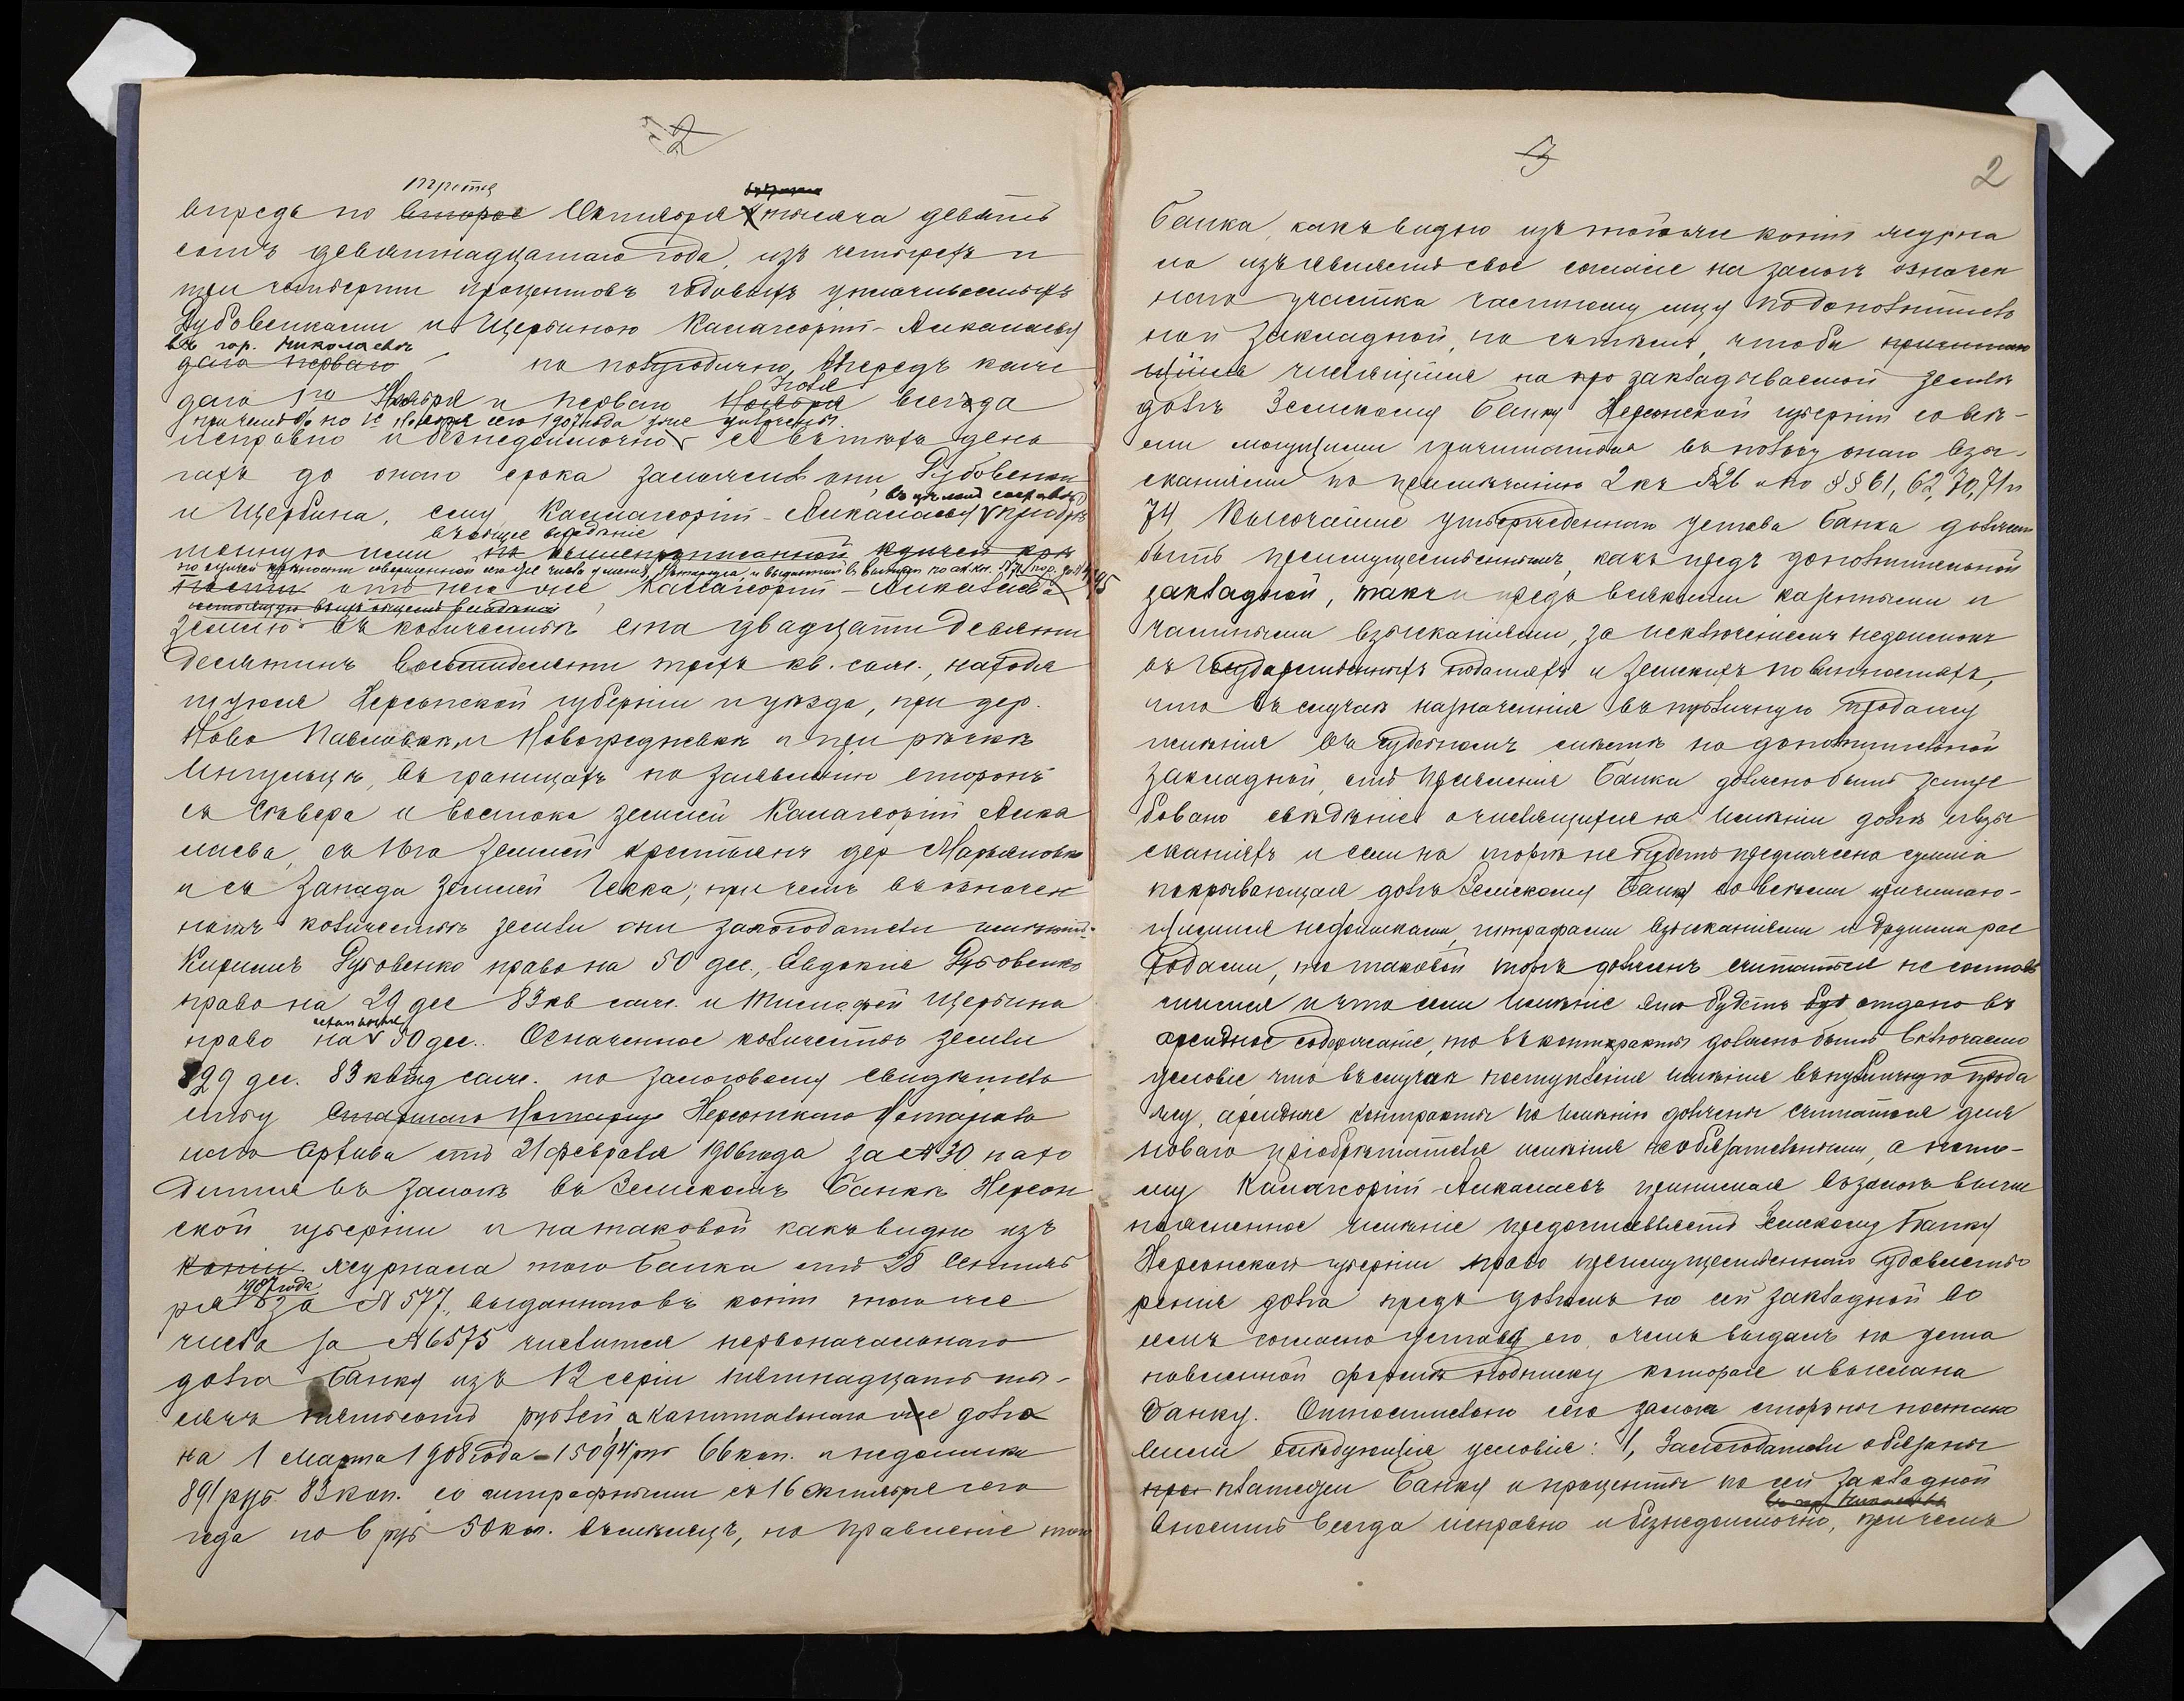 2
третье
впредь по второе Октября тысяча девять
сотъ девятнадцатаго года, изъ четырехъ и
три четверти процентовъ годовыхъ уплачиваемыхъ
Дубовенками и Щербиною Калагеоргій-Алкалаеву
въ гор. Николаевѣ
дого перваго по полугодично, впередъ каж
Іюля
даго 1го Января и перваго Ноября всегда
при чемъ % по 1е Января сего 1907 года уже уплачены.
исправно и безнедоимочно, съ вѣтихъ день
гахъ до онаго срока заложили они Дубовенки
въ цѣломъ составѣ
и Щербина, ему Калагеоргій-Алкалаеву прiобрѣ
въ общее владѣніе
тенную ими по вышепрописанной купчей крѣ
пости отъ него же Калагеоргій-Алкалаева
землю въ количествѣ ста двадцати девяти
десятинъ восьмидесяти трехъ кв. саж., находя
щуюся Херсонской губерніи и уѣзда, при дер.
Ново Павловкѣ и Новогредневкѣ и при рѣчкѣ
Ингульцѣ, въ границахъ по заявленію сторонъ
съ Сѣвера и востока землей Калагеоргій Алка
лаева, съ Юга землей крестьянъ дер Марьяновки
и съ Запада землей Чекка; при чемъ въ означен
номъ количествѣ земли они залогодатели имѣютъ:
Кириллъ Дубовенко право на 50 дес., Евдокія Дубовенко
право на 29 дес 83 кв саж. и Тимофей Щербина
остальныя
право на 50 дес. Означенное количество земли
129 дес. 83 квад саж. по залоговому свидѣтель
ству Старшаго Нотаріуса Херсонскаго Нотаріаль
наго Архива отъ 21 февраля 1906 года за № 30 нахо
дится въ залогѣ въ Земскомъ Банкѣ Херсон
ской губерніи и на таковой какъ видно изъ
копіи журнала того Банка отъ 28 Сентяб
1907 года
ря за № 577, выданной въ копіи того же
числа за № 6575 числится первоначальнаго
долга Банку изъ 12 серіи пятнадцать ты-
сячъ пятьсотъ рублей, а капитальнаго же долга
на 1 Марта 1908 года = 15094 руб 66 коп. и недоимки
891 руб 83 коп. со штрафными съ 16 Октября сего
года по 6 руб 50 коп. въ мѣсяцъ, но правленіе того
3
2
Банка, какъ видно изъ той же копіи журна
ла изъявляетъ свое согласіе на залогъ означен
наго участка частному лицу по дополнитель
ной закладной, но съ тѣмъ, чтобы причитаю
щійся числящійся на про закладываемой землѣ
долгъ Земскому Банку Херсонской губерніи со всѣ-
ми могущими причитаться въ пользу онаго взы-
сканіями по примѣчанію 2 къ § 26 и по §§ 61, 62, 70, 71 и
74 Высочайше утвержденнаго устава Банка долженъ
быть преимущественнымъ, какъ предъ дополнительной
закладной, такъ и предъ всякими казенными и
частными взысканіями, за исключеніемъ недоимокъ
въ Государственныхъ податяхъ и земскихъ повинностяхъ,
что въ случаѣ назначенія въ публичную продажу
имѣнія въ судебномъ мѣстѣ по дополнительной
закладной, отъ Правленія Банка должно быть затре
бовано свѣдѣніе о числящихся на имѣніи долгѣ и взы
сканіяхъ и если на торгѣ не будетъ предложена сумма
покрывающая долгъ Земскому Банку со всѣми причитаю-
щимися недоимками, штрафами взысканіями и другими рас
ходами, то таковой торгъ долженъ считаться не состояв
шимся и что если имѣніе это будетъ буд отдано въ
арендное содержаніе, то въ контрактъ должно быть включено
условіе что въ случаѣ поступленія имѣнія въ публичную прода
жу, арендные контракты по имѣнію должны считаться для
новаго пріобрѣтателя имѣнія необязательными, а пото-
му Калагеоргій-Алкалаевъ принимая въ залогъ выше
поясненное имѣніе предоставляетъ Земскому Банку
Херсонской губерніи право преимущественнаго удовлетво
ренія долга предъ долгомъ по сей закладной во
всемъ согласно уставу его, о чемъ выдалъ по уста
новленной формѣ подписку которая и выслана
Банку. Относительно сего залога стороны постано
вили слѣдующія условія: 1, Залогодатели обязаны
про платежи Банку и проценты по сей закладной
въ гор Николаевѣ
вносить всегда исправно и безнедоимочно, при чемъ